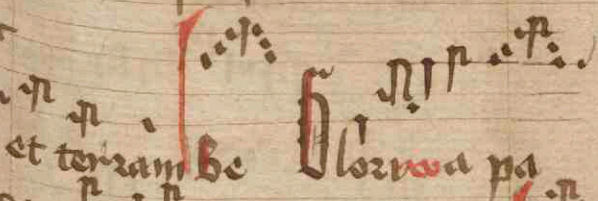 et terram Be Gloria pa